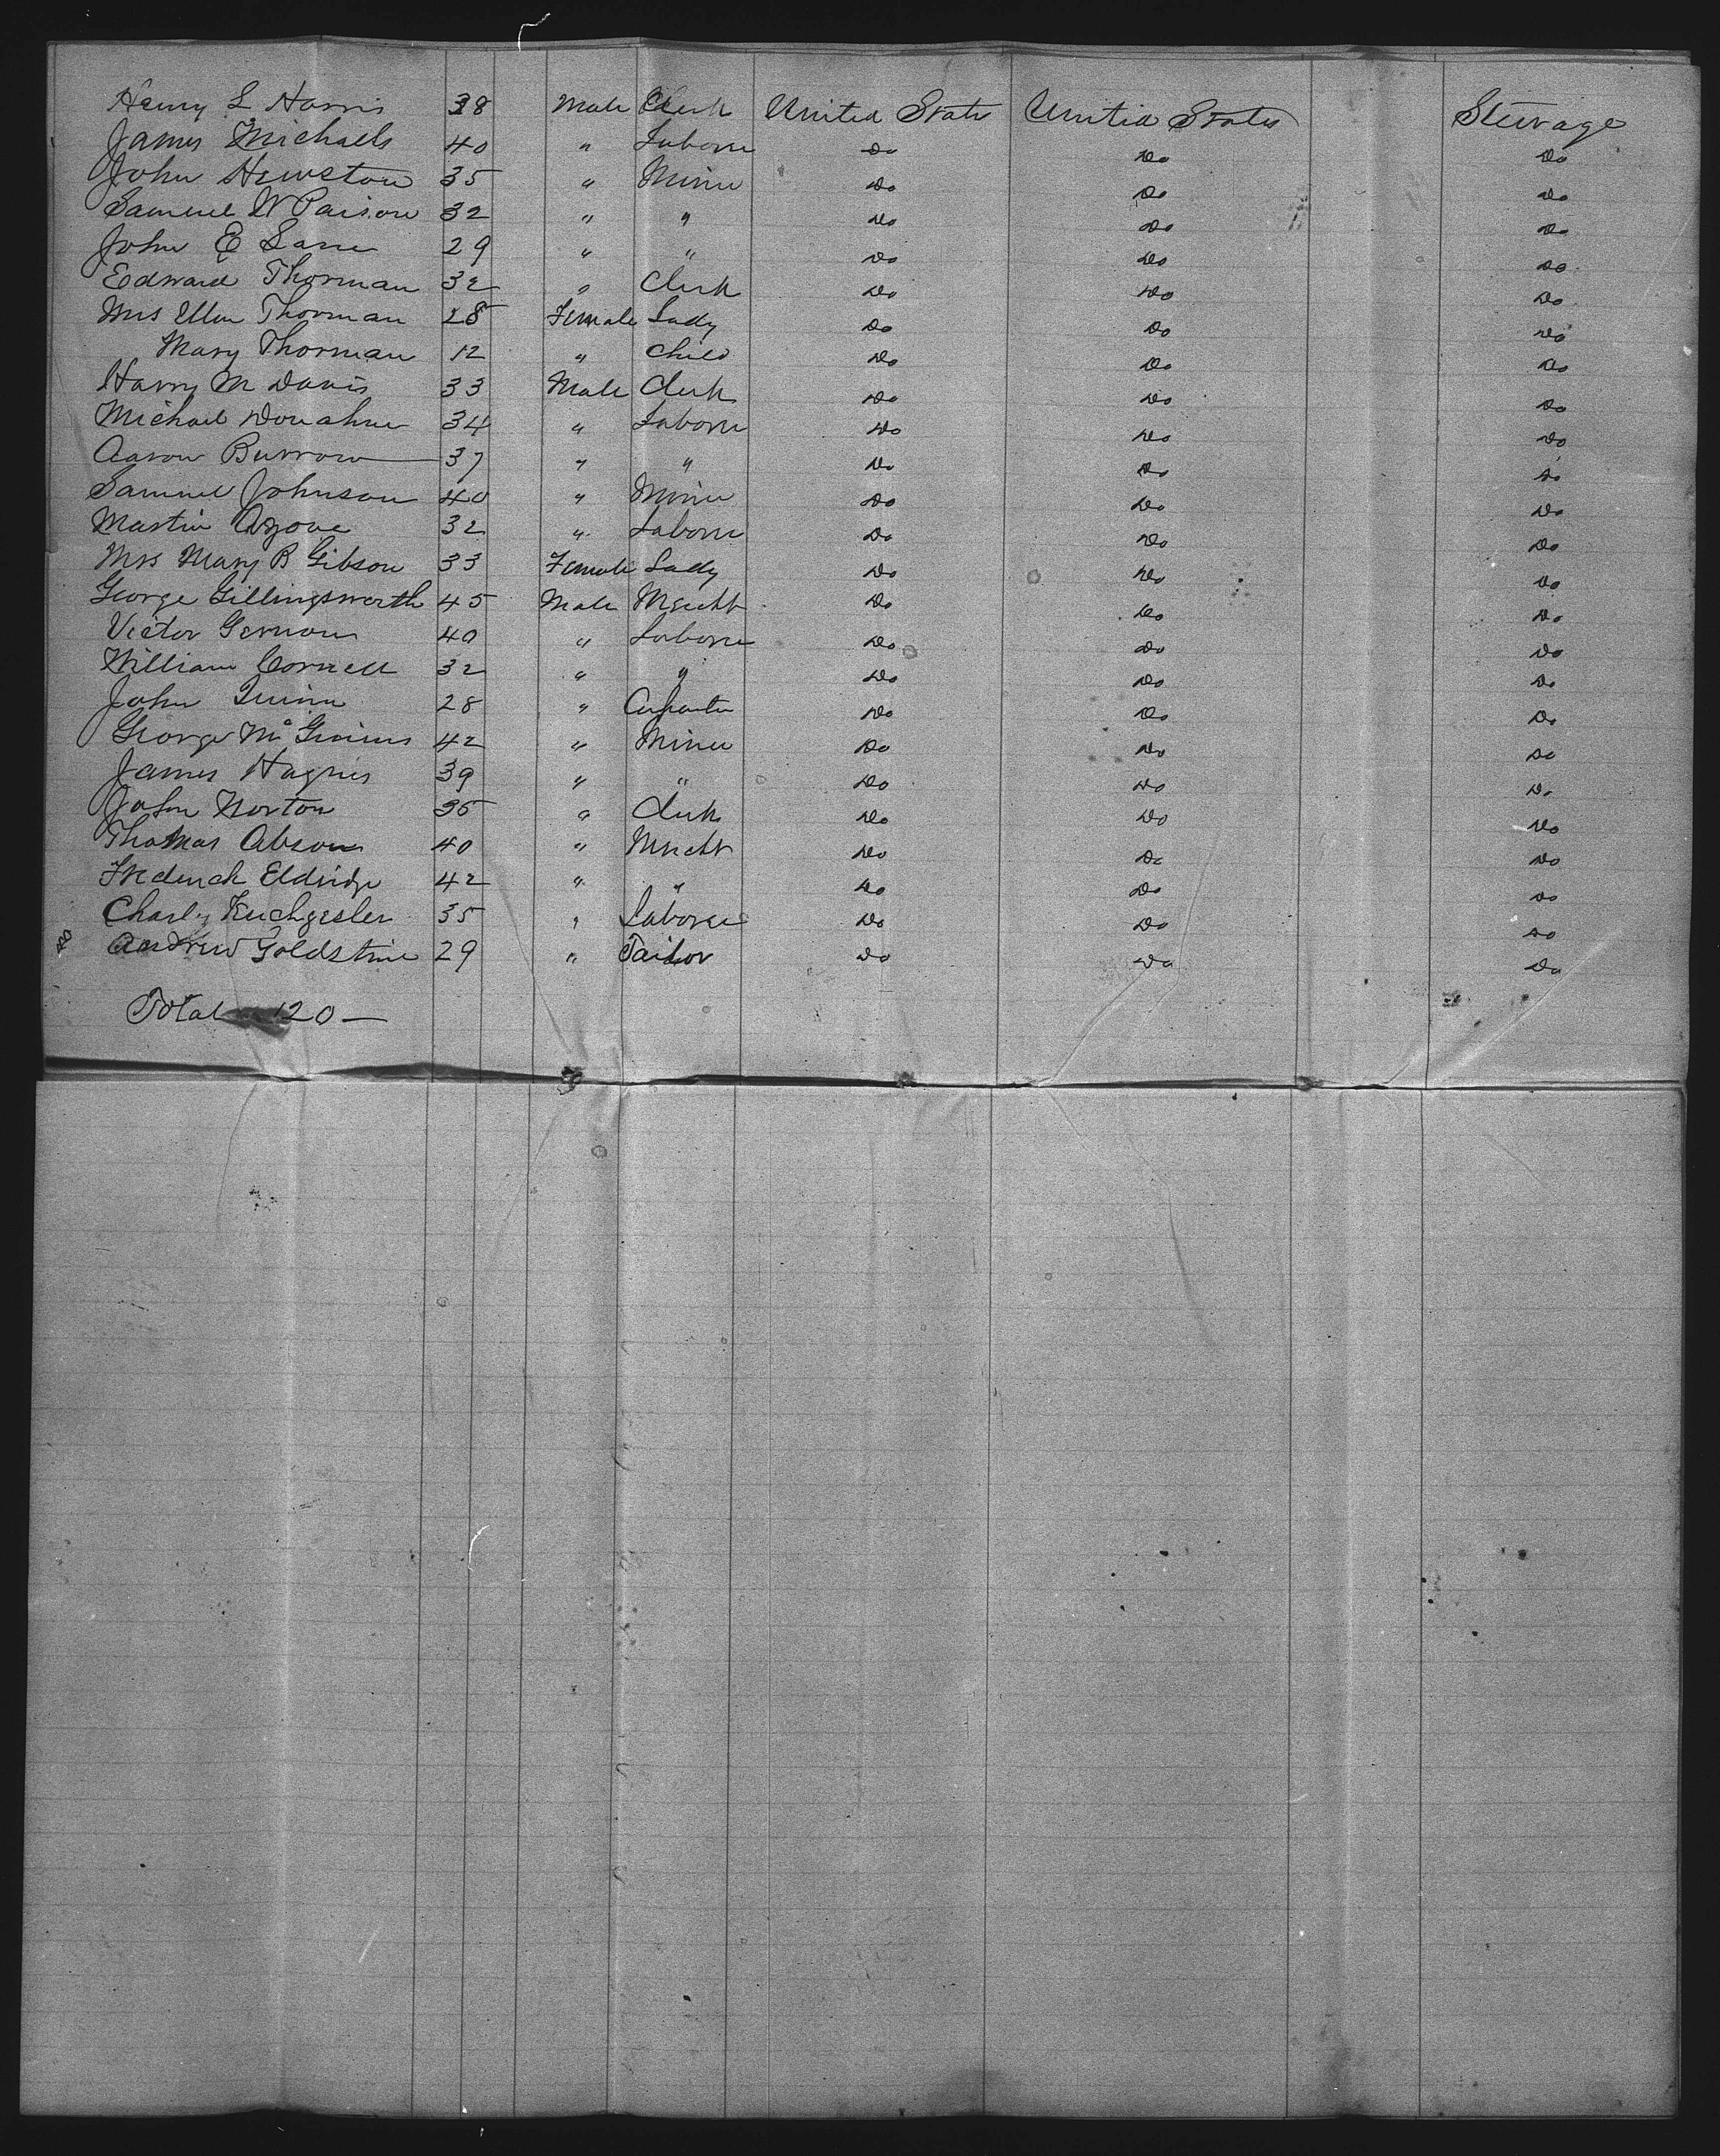 Henry L Harris 38 Male Clerk United States United States Steerage
James Michaels 40 " Laborer Do Do Do
John Hewston 35 " Miner Do Do Do
Samuel W Parson 32 " " Do Do Do
John E Lane 29 " " Do Do Do
Edward Thorman 32 " Clerk Do Do Do
Mrs Ellen Thorman 28 Female Lady Do Do Do
Mary Thorman 12 " Child Do Do Do
Harry M Davis 33 Male Clerk Do Do Do
Michael Donahue 34 " Laborer Do Do Do
Aaron Burrow 37 " " Do Do Do
Samuel Johnson 40 " Miner Do Do Do
Martin 32 " Laborer Do Do Do
Mrs Mary B Gibson 33 Female Lady Do Do Do
George Gillingsworth 45 Male Mercht Do Do Do
Victor Gernon 40 " Laborer Do Do Do
William Cornell 32 " " Do Do Do
John Quinn 28 " Carpenter Do Do Do
George McGinnis 42 " Miner Do Do Do
James Hagnes 39 " " Do Do Do
John Norton 35 " Clerk Do Do Do
Thomas Abson 40 " Mercht Do Do Do
Frederick Eldridge 42 " " Do Do Do
Charly 35 " Laborer Do Do Do
Andrew Goldstine 29 " Tailor Do Do Do
Total 120 —